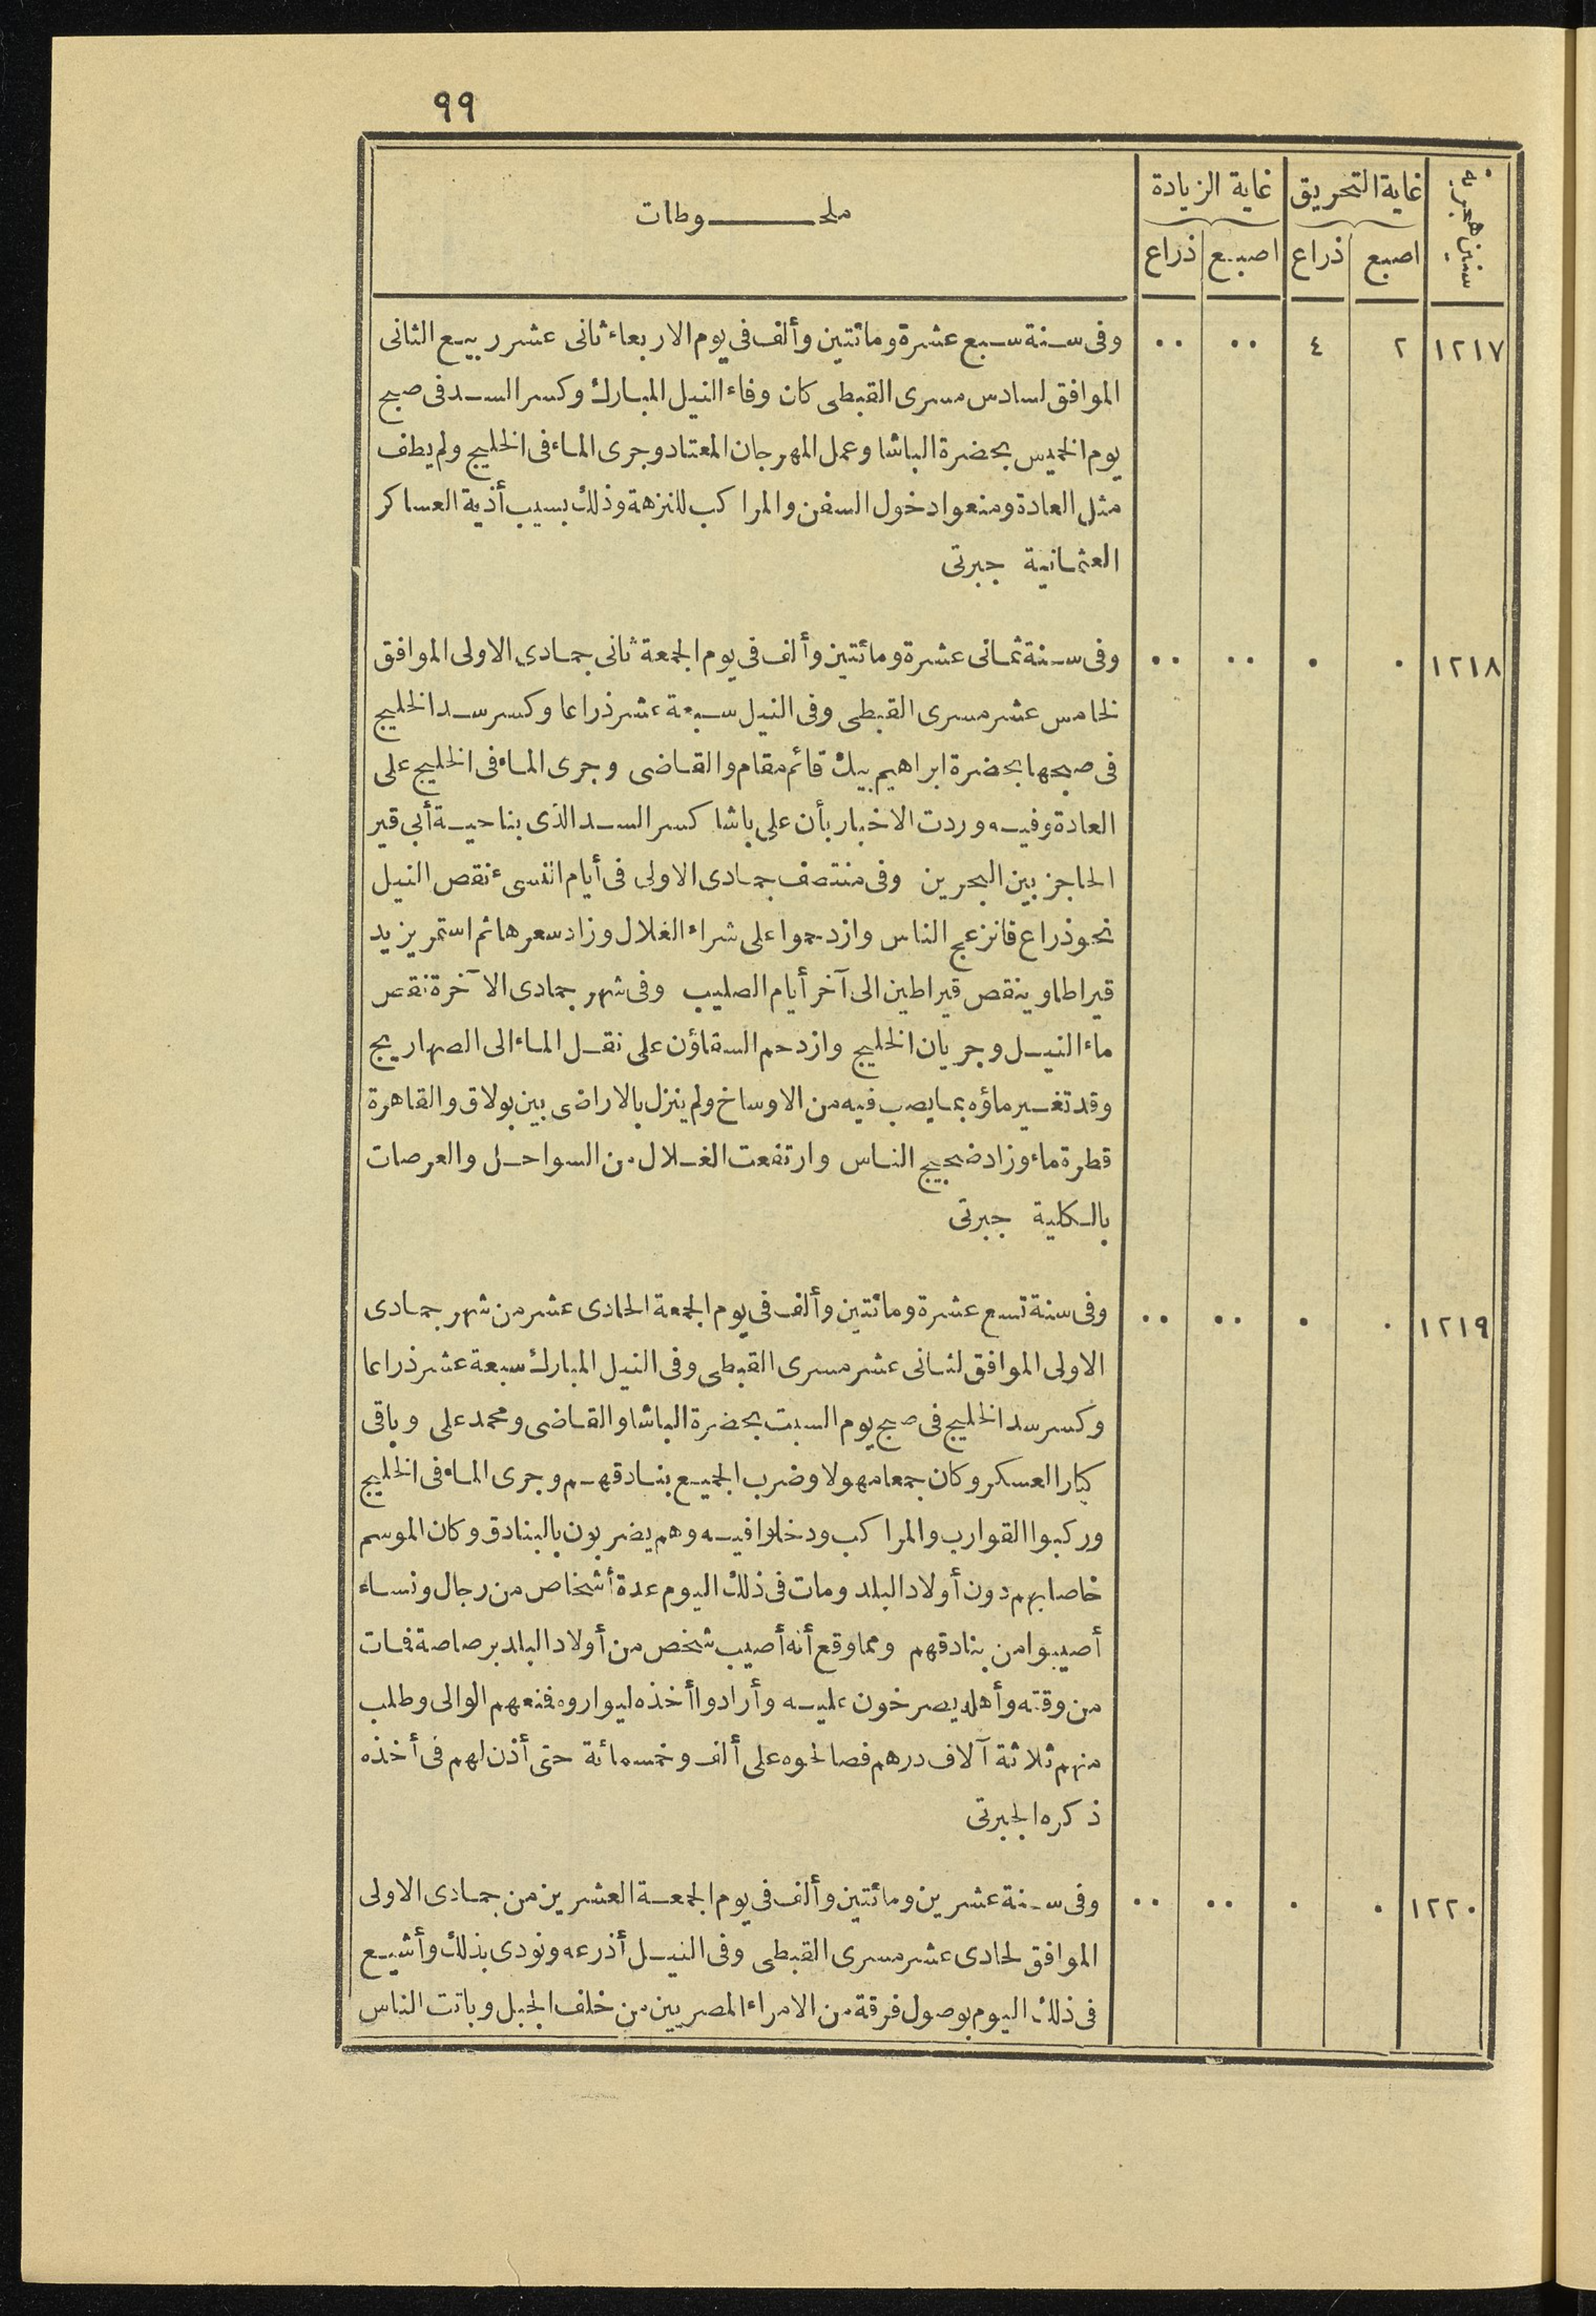 ٩٩
سنين هجرية | غاية التحريق | غاية الزيادة | ملحـــــــوظات
اصبع | ذراع | اصبع | ذراع
١٢١٧ | ٢ | ٤ | ٠٠ | ٠٠ | وفى سنة سبع عشرة ومائتين وألف فى يوم الاربعاء ثانى عشر ربيع الثانى
الموافق لسادس مسرى القبطى كان وفاء النيل المبارك وكسر السد فى صبح
يوم الخميس بحضرة الباشا وعمل المهرجان المعتاد وجرى الماء فى الخليج ولم يطف
مثل العادة ومنعوا دخول السفن والمراكب للنزهة وذلك بسبب أذية العساكر
العثمانية جبرتى
١٢١٨ | ٠ | ٠ | ٠٠ | ٠٠ | وفى سنة ثمانى عشرة ومائتين وألف فى يوم الجمعة ثانى جمادى الاولى الموافق
لخامس عشر مسرى القبطى وفى النيل سبعة عشر ذراعا وكسر سد الخليج
فى صبحها بحضرة ابراهيم بيك قائم مقام والقاضى وجرى الماء فى الخليج على
العادة وفيه وردت الاخبار بأن على باشا كسر السد الذى بناحية أبى قير
الحاجز بين البحرين وفى منتصف جمادى الاولى فى أيام النسىء نقص النيل
نحو ذراع فانزعج الناس وازدحموا على شراء الغلال وزاد سعرها ثم استمر يزيد
قيراطا وينقص قيراطين الى آخر أيام الصليب وفى شهر جمادى الآخرة نقص
ماء النيل وجريان الخليج وازدحم السقاؤن على نقل الماء الى الصهاريج
وقد تغير ماؤه بما يصب فيه من الاوساخ ولم ينزل بالاراضى بين بولاق والقاهرة
قطرة ماء وزاد ضجيج الناس وارتفعت الغلال من السواحل والعرصات
بالكلية جبرتى
١٢١٩ | ٠ | ٠ | ٠٠ | ٠٠ | وفى سنة تسع عشرة ومائتين وألف فى يوم الجمعة الحادى عشر من شهر جمادى
الاولى الموافق لثانى عشر مسرى القبطى وفى النيل المبارك سبعة عشر ذراعا
وكسر سد الخليج فى صبح يوم السبت بحضرة الباشا والقاضى ومحمد على وباقى
كبار العسكر وكان جمعا مهولا وضرب الجميع بنادقهم وجرى الماء فى الخليج
وركبوا القوارب والمراكب ودخلوا فيه وهم يضربون بالبنادق وكان الموسم
خاصا بهم دون أولاد البلد ومات فى ذلك اليوم عدة أشخاص من رجال ونساء
أصيبوا من بنادقهم ومما وقع أنه أصيب شخص من أولاد البلد برصاصة فمات
من وقته وأهله يصرخون عليه وأرادوا أخذه ليواروه فمنعهم الوالى وطلب
منهم ثلاثة آلاف درهم فصالحوه على ألف وخمسمائة حتى أذن لهم فى أخذه
ذكره الجبرتى
١٢٢٠ | ٠ | ٠ | ٠٠ | ٠٠ | وفى سنة عشرين ومائتين وألف فى يوم الجمعة العشرين من جمادى الاولى
الموافق لحادى عشر مسرى القبطى وفى النيل أذرعه ونودى بذلك وأشيع
فى ذلك اليوم بوصول فرقة من الامراء المصريين من خلف الجبل وباتت الناس